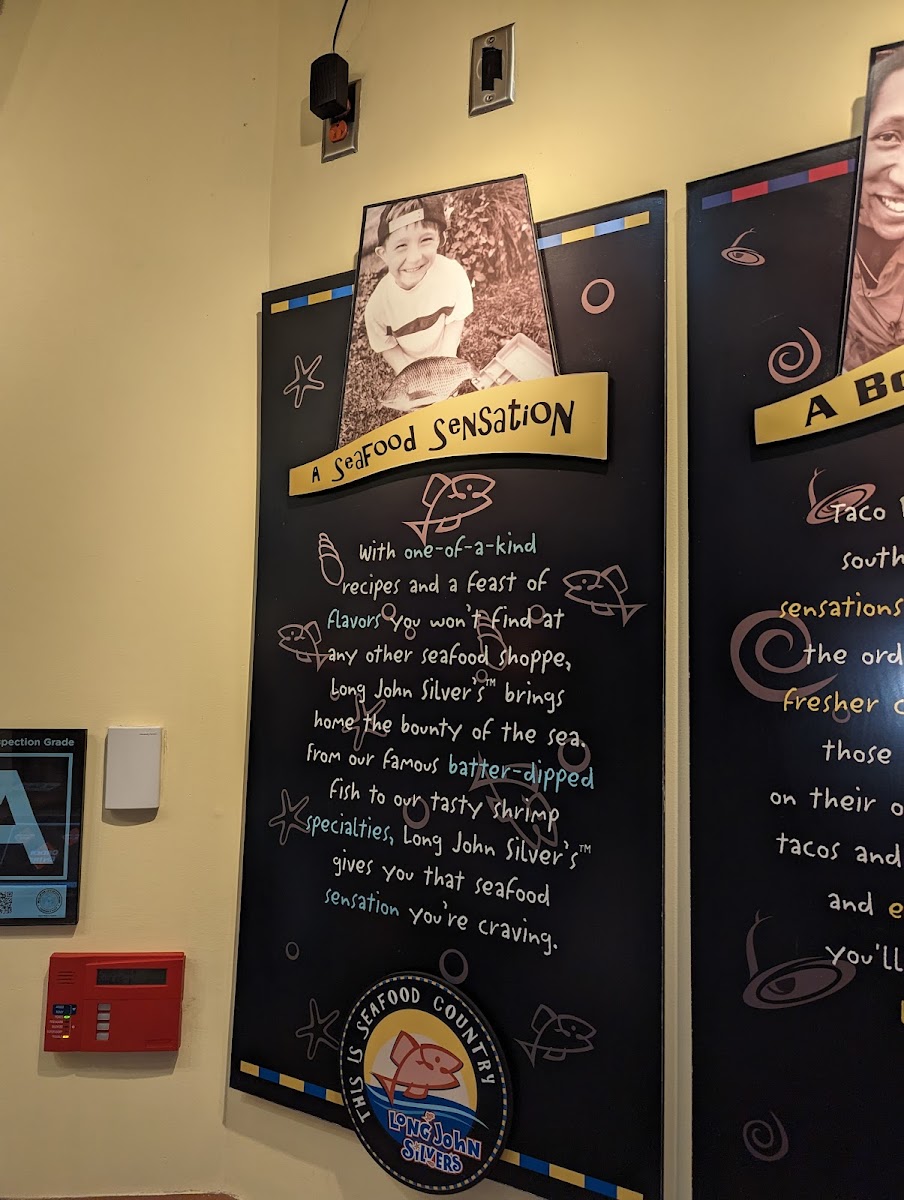 A Seafood Sensation
With one-of-a-kind
recipes and a feast of
flavors you won't find at
any other seafood shoppe,
Long John Silver's™ brings
home the bounty of the sea.
From our famous batter-dipped
fish to our tasty shrimp
specialties, Long John Silver's™
gives you that seafood
sensation you're craving.
THIS IS SEAFOOD COUNTRY
LONG JOHN
SILVER'S
A
Taco
south
sensations
the
fresher
those
on their
tacos and
and
you'll
Grade
A